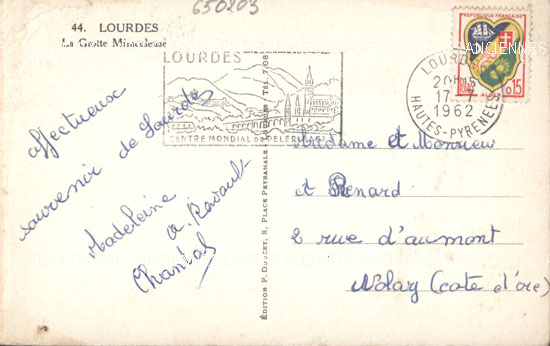 650203
44. LOURDES
La Grotte Miraculeuse
LOURDES
CENTRE MONDIAL DE PÈLERINAGE
REPUBLIQUE FRANÇAISE
ALGER
0,15
LOURDES
20H15
17-7
1962
HAUTES-PYRENEES
ANCIENNES
affectueux
souvenir de Lourdes
Madeleine
A. Ravault
Chantal
ÉDITION P. DOUCET, 8, PLACE PEYRAMALE - LOURDES - Tél. 7/08
Madame et Monsieur
A Renard
2 rue d'aumont
Nolay (cote d'or)